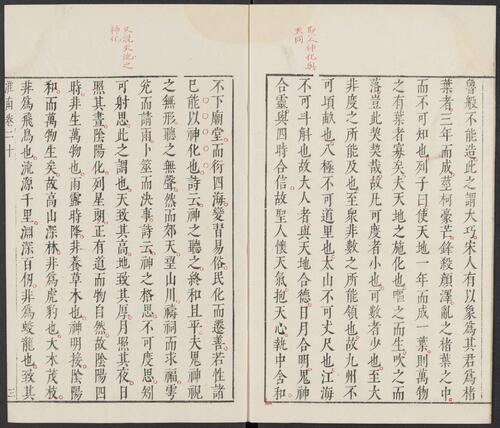 聖人神化與
天同
魯般不能造此之謂大巧宋人有以象為其君為楮
葉者三年而成莖柯豪芒鋒殺顏澤亂之楮葉之中
而不可知也列子曰使天地一年而成一葉則萬物
之有葉者寡矣夫天地之施化也嘔之而生吹之而
落豈此契契哉故凡可度者小也可數者少也至大
非度之所能及也至眾非數之所能領也故九州不
可頃畝也八極不可道里也太山不可丈尺也江海
不可斗斛也故大人者與天地合德日月合明鬼神
合靈與四時合信故聖人懷天氣抱天心執中含和
又說天地之
神化
不下廟堂而衍四海變習易俗民化而遷善若性諸
已能以神化也詩云神之聽之終和且平夫鬼神視
之無形聽之無聲然而郊天望山川禱祠而求福雩
兌而請雨卜筮而決事詩云神之格思不可度思矧
可射思此之謂也天致其高地致其厚月照其夜日
照其晝陰陽化列星期正有道而物自然故陰陽四
時非生萬物也雨露時降非養草木也神明接陰陽
和而萬物生矣故高山深林非為虎豹也大木茂枝
非為飛鳥也流源千里淵深百仞非為蛟龍也致其
淮南卷二十
三